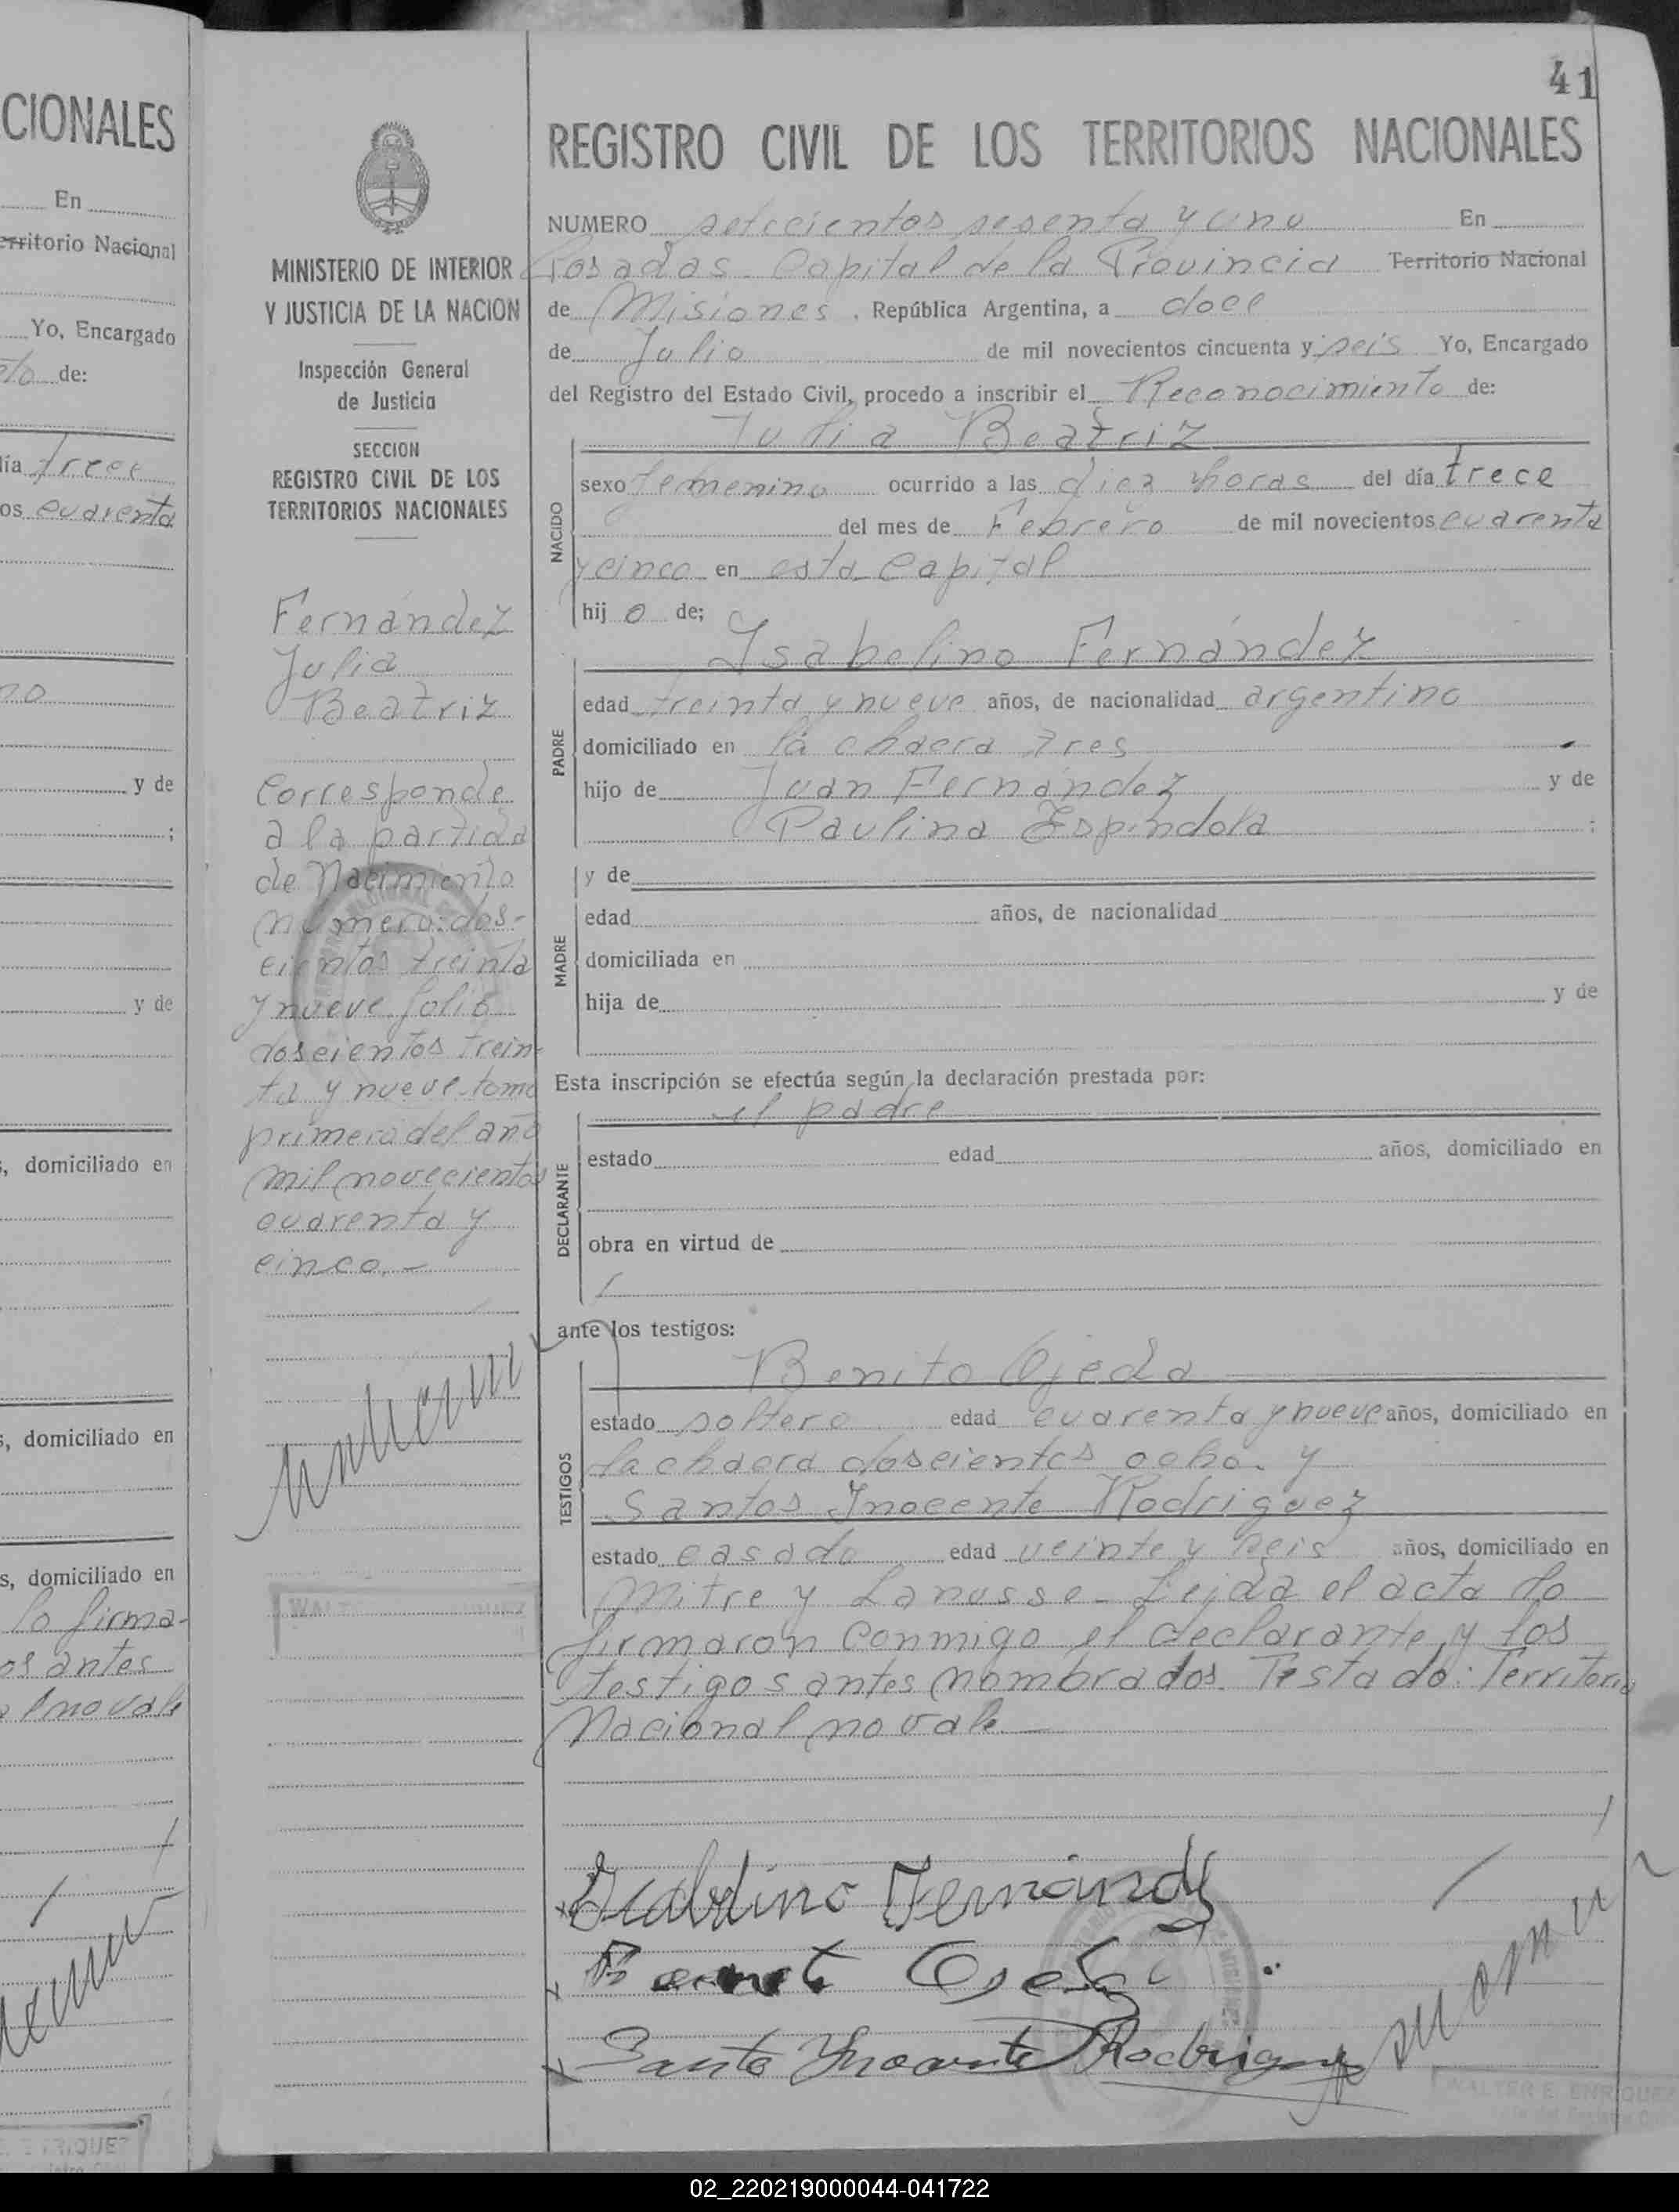 CIONALES
En
erritorio Nacional
Yo, Encargado
de:
día trece
os cuarenta
no
y de
;
y de
, domiciliado en
s, domiciliado en
s, domiciliado en
lo firma-
os antes
l no vale
41
MINISTERIO DE INTERIOR
Y JUSTICIA DE LA NACION
Inspección General
de Justicia
SECCION
REGISTRO CIVIL DE LOS
TERRITORIOS NACIONALES
Fernández
Julia
Beatriz
Corresponde
a la partida
de Nacimiento
número: dos-
cientos treinta
y nueve folio
doscientos trein-
ta y nueve tomo
primero del año
mil novecientos
cuarenta y
cinco.-
REGISTRO CIVIL DE LOS TERRITORIOS NACIONALES
NUMERO setecientos sesenta y uno En
Posadas Capital de la Provincia Territorio Nacional
de Misiones, República Argentina, a doce
de Julio de mil novecientos cincuenta y seis Yo, Encargado
del Registro del Estado Civil, procedo a inscribir el Reconocimiento de:
Julia Beatriz
NACIDO
sexo femenino ocurrido a las diez horas del día trece
del mes de Febrero de mil novecientos cuarenta
y cinco en esta Capital
hij o de;
Isabelino Fernández
PADRE
edad treinta y nueve años, de nacionalidad argentino
domiciliado en la chacra tres
hijo de Juan Fernández y de
Paulina Espíndola ;
MADRE
y de
edad años, de nacionalidad
domiciliada en
hija de y de
Esta inscripción se efectúa según la declaración prestada por:
el padre
DECLARANTE
estado edad años, domiciliado en
obra en virtud de
ante los testigos:
Benito Ojeda
TESTIGOS
estado soltero edad cuarenta y nueve años, domiciliado en
la chacra doscientos ocho y
Santos Inocente Rodriguez
estado casado edad veinte y seis años, domiciliado en
Mitre y Lanusse - Leída el acta la
firmaron conmigo el declarante y los
testigos antes nombrados. Testado: Territorio
Nacional no vale
Isabelino Fernández
Santo Ynocente Rodriguez
WALTER E. ENRIQUEZ
02_220219000044-041722